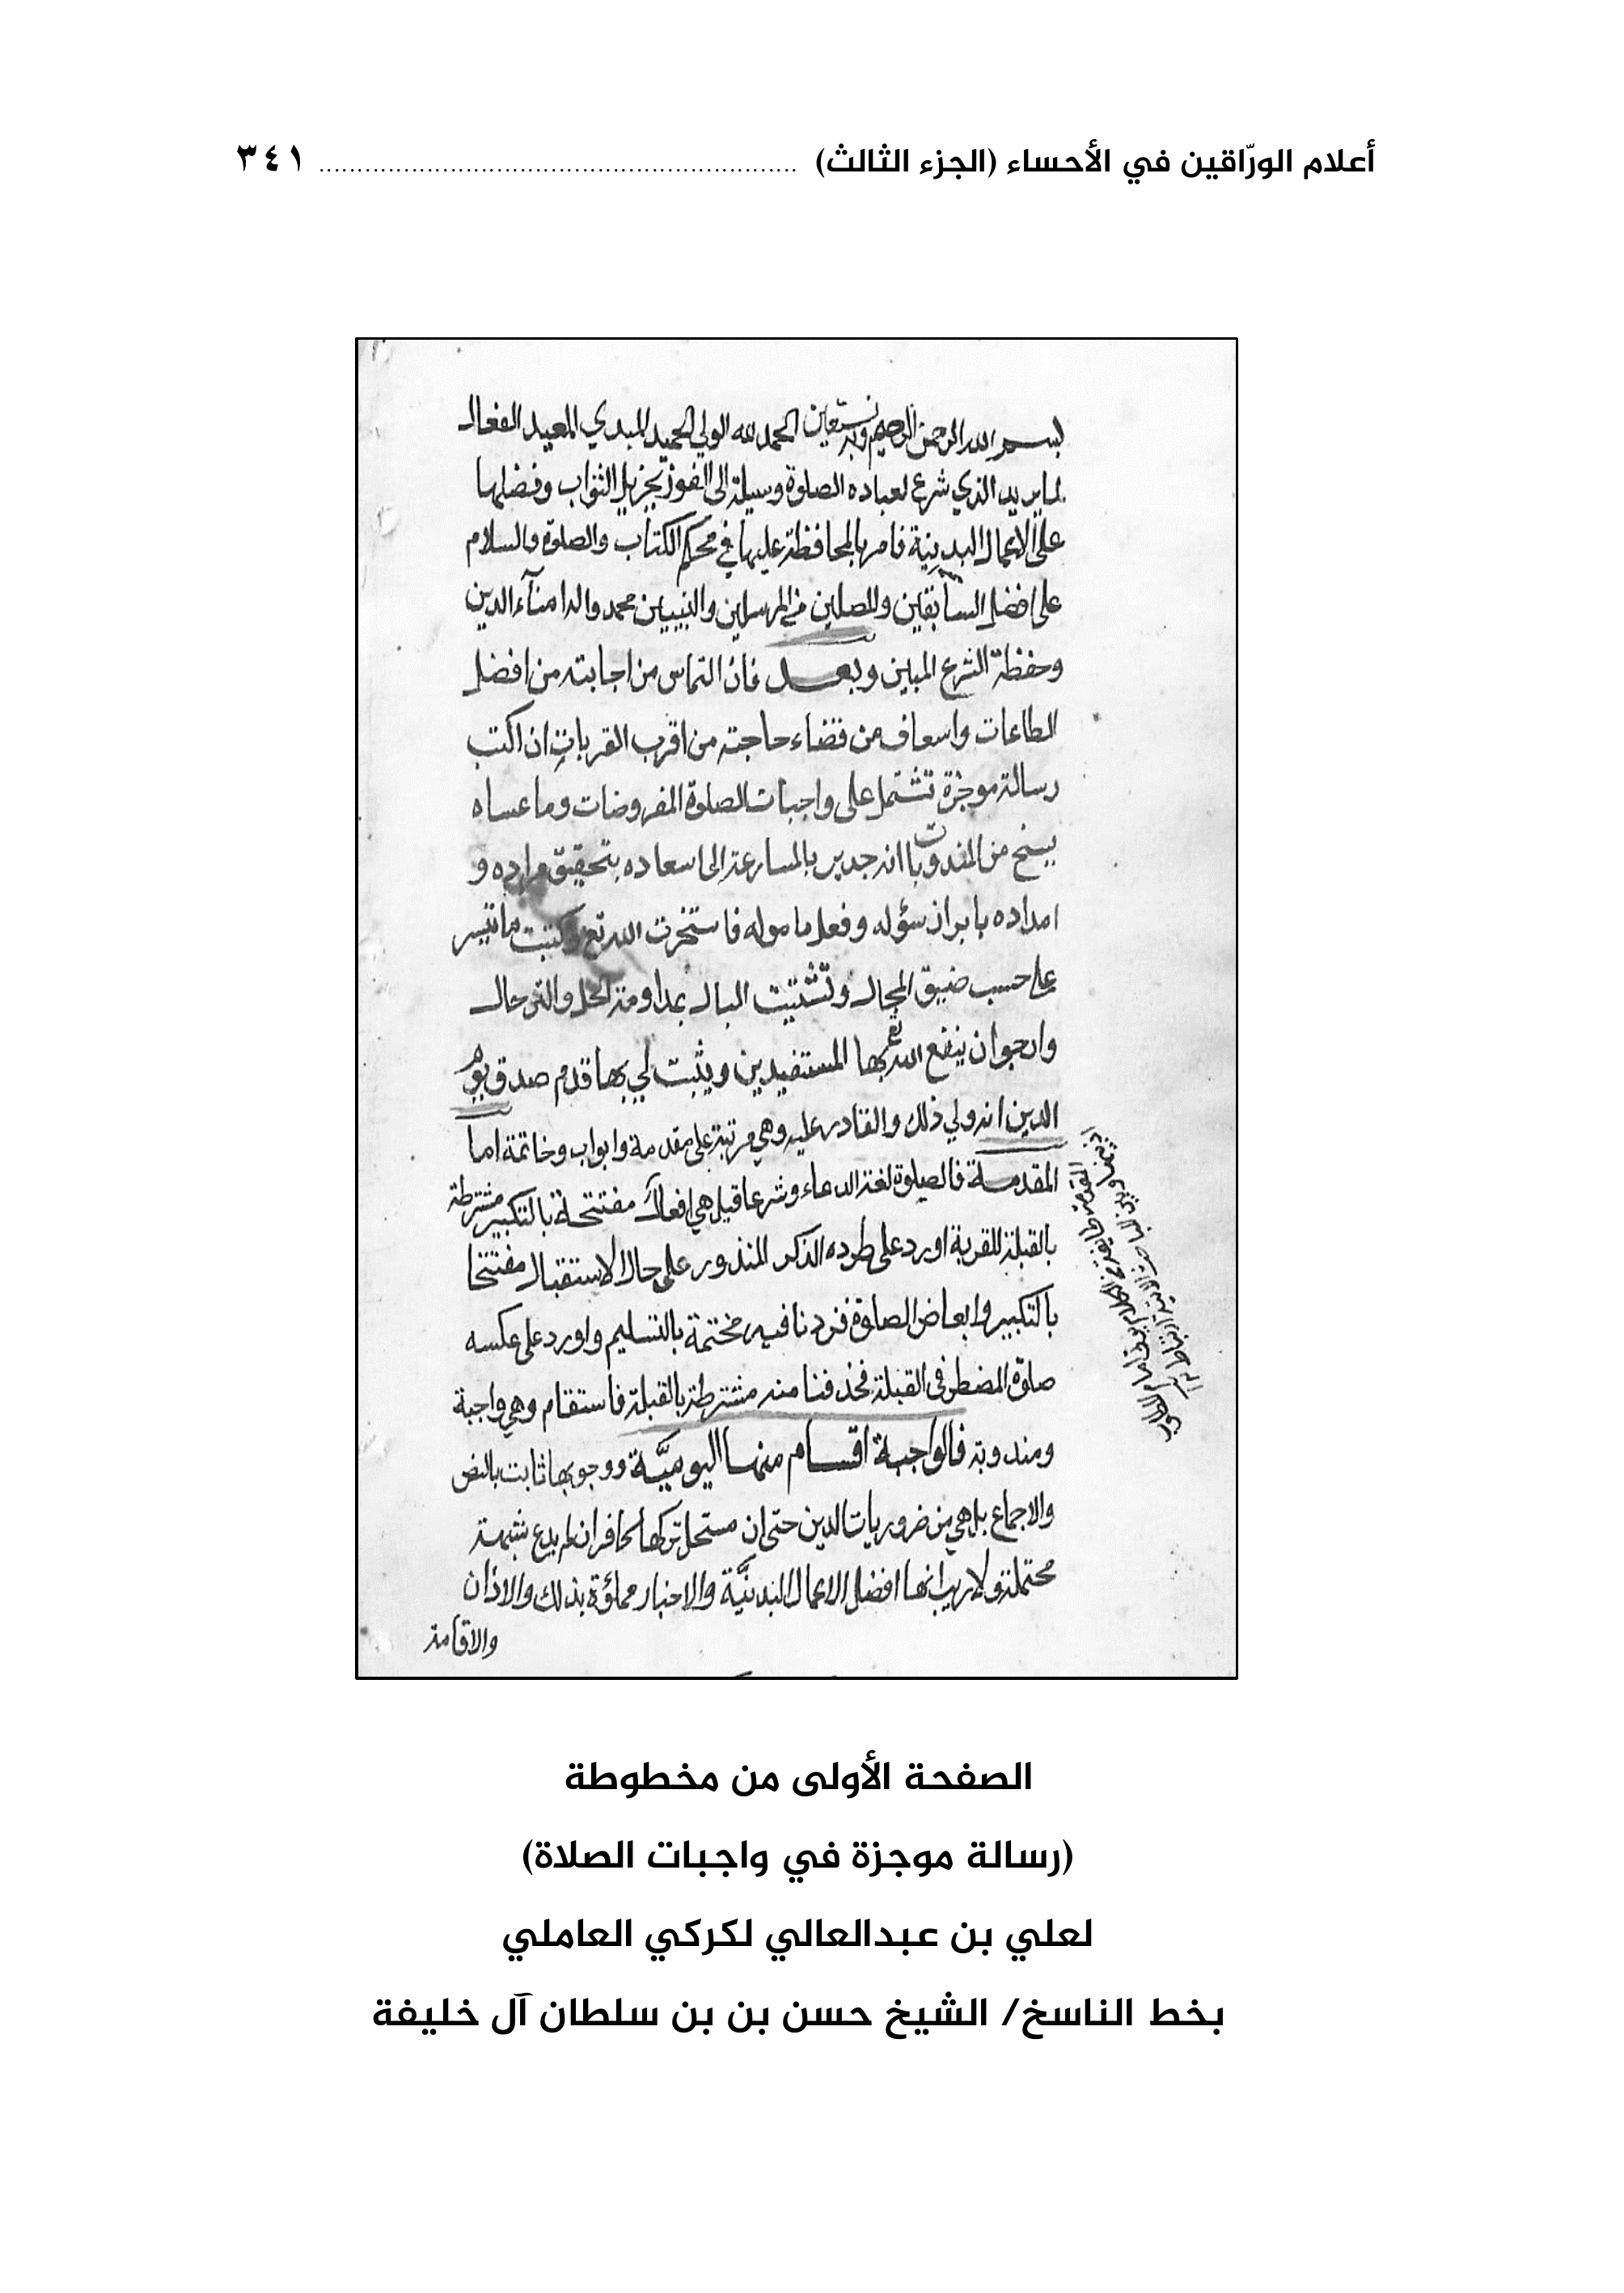 أعلام الورّاقين في الأحساء (الجزء الثالث) ........................................................... ٣٤١
بسم الله الرحمن الرحيم وبه نستعين الحمد لله الولي الحميد المبدي المعيد الفعال
لما يريد الذي شرع لعباده الصلوة وسيلة الى الفوز بجزيل الثواب وفضلها
على الاعمال البدنية فامر بالمحافظة عليها في محكم الكتاب والصلوة والسلام
على افضل السابقين والمصلين من المرسلين والنبيين محمد واله امناء الدين
وحفظة الشرع المبين وبعد فان التماس من اجابته من افضل
الطاعات واسعاف من قضاء حاجته من اقرب القربات ان اكتب
رسالة موجزة تشتمل على واجبات الصلوة المفروضات وما عساه
يسنح من المندوبات انه جدير بالمسارعة الى اسعاده بتحقيق مراده و
امداده بابراز سؤله وفعل ماموله فاستخرت الله تع وكتبت ما تيسر
على حسب ضيق المجال وتشتيت البال بمداومة الحل والترحال
وارجو ان ينفع الله تع بها المستفيدين ويثبت لي بها قدم صدق يوم
الدين انه ولي ذلك والقادر عليه وهي مرتبة على مقدمة وابواب وخاتمة اما
المقدمة فالصلوة لغة الدعاء وشرعا قيل هي افعال مفتتحة بالتكبير مشترطة
بالقبلة للقربة اورد على طرده الذكر المنذور على حال الاستقبال مفتتحا
بالتكبير وابعاض الصلوة فزدنا فيه مختتمة بالتسليم واورد على عكسه
صلوة المضطر في القبلة فحذفنا منه مشترطة بالقبلة فاستقام وهي واجبة
ومندوبة فالواجبة اقسام منها اليوميّة ووجوبها ثابت بالنص
والاجماع بل هي من ضروريات الدين حتى ان مستحل تركها كافر ان لم يدع شبهة
محتملة ولا ريب انها افضل الاعمال البدنيّة والاخبار مملؤة بذلك والاذان
والاقامة
الصفحة الأولى من مخطوطة
(رسالة موجزة في واجبات الصلاة)
لعلي بن عبدالعالي لكركي العاملي
بخط الناسخ/ الشيخ حسن بن بن سلطان آل خليفة